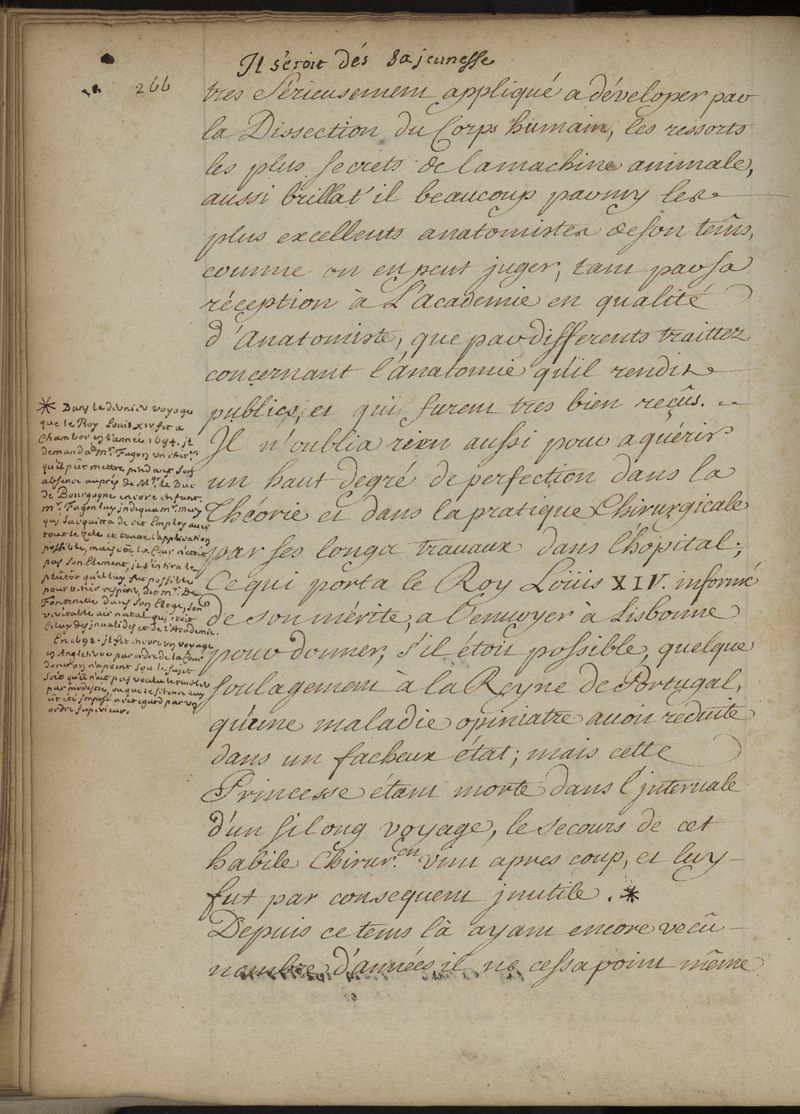 266
Il s'eroit dés sa jeunesse
tres Sérieusement appliqué a déveloper par
la Dissection du Corps humain, les ressorts
les plus secrets de la machine animale,
aussi brillat'il beaucoup parmy les
plus excellents anatomistes de son tems,
comme on en peut juger, tant par sa
réception à L'Academie en qualité
d'Anatomiste, que par differents traittez
concernant l'anatomie qu'il rendit
publics, et qui furent tres bien reçûs.
Il n'oublia rien aussi pour aquérir
un haut degré de perfection dans la
Théorie et dans la pratique Chirurgicale
par ses longs travaux dans l'hôpital;
Ce qui porta le Roy Loüis XIV. informé
de son mérite, a l'envoyer à Lisbonne
pour donner, s'il étoit possible, quelque
soulagement à la Reyne de Portugal,
qu'une maladie opiniatre avoit réduite
dans un facheux état; mais cette
Princesse étant morte dans l'jntervale
d'un si long voyage, le secours de cet
habile Chirur.en vint apres coup, et luy
fut par consequent jnutile. *
Depuis ce tems là ayant encore vecû
nombre d'années il ne cessa point même
* Dans le dernier voyage
que le Roy Louis XIV fit a
Chambor en l'année 1684. jl
demanda a Mr. Fagon un chir.en
qu'il put mettre pendant son
absence auprès de Mr. le Duc
de Bourgogne encore enfant.
Mr. Fagon luy indiqua Mr.
qui s'acquitta de cet Employ avec
tout le zele et toute l'application
possible, mais côe la Cour n'étoit
pas son Element, il s'en tira le
plûtôt qu'il luy fut possible
pour venir respirer, dit Mr. De
Fontenelle dans son Eloge, son
veritable air natal qui étoit
Celuy des jnvalides et de l'Academie.
En 1692. jl fit encore un voyage
en Angleterre par ordre de la Cour
dont on n'a point sçu le sujet
soit qu'il n'eut pas voulu le
par modestie, ou que le silence luy
eut été imposé a cet egard par un
ordre superieur.